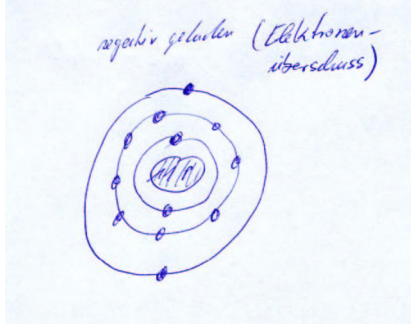 negativ geladen (Elektronen-
überschuss)